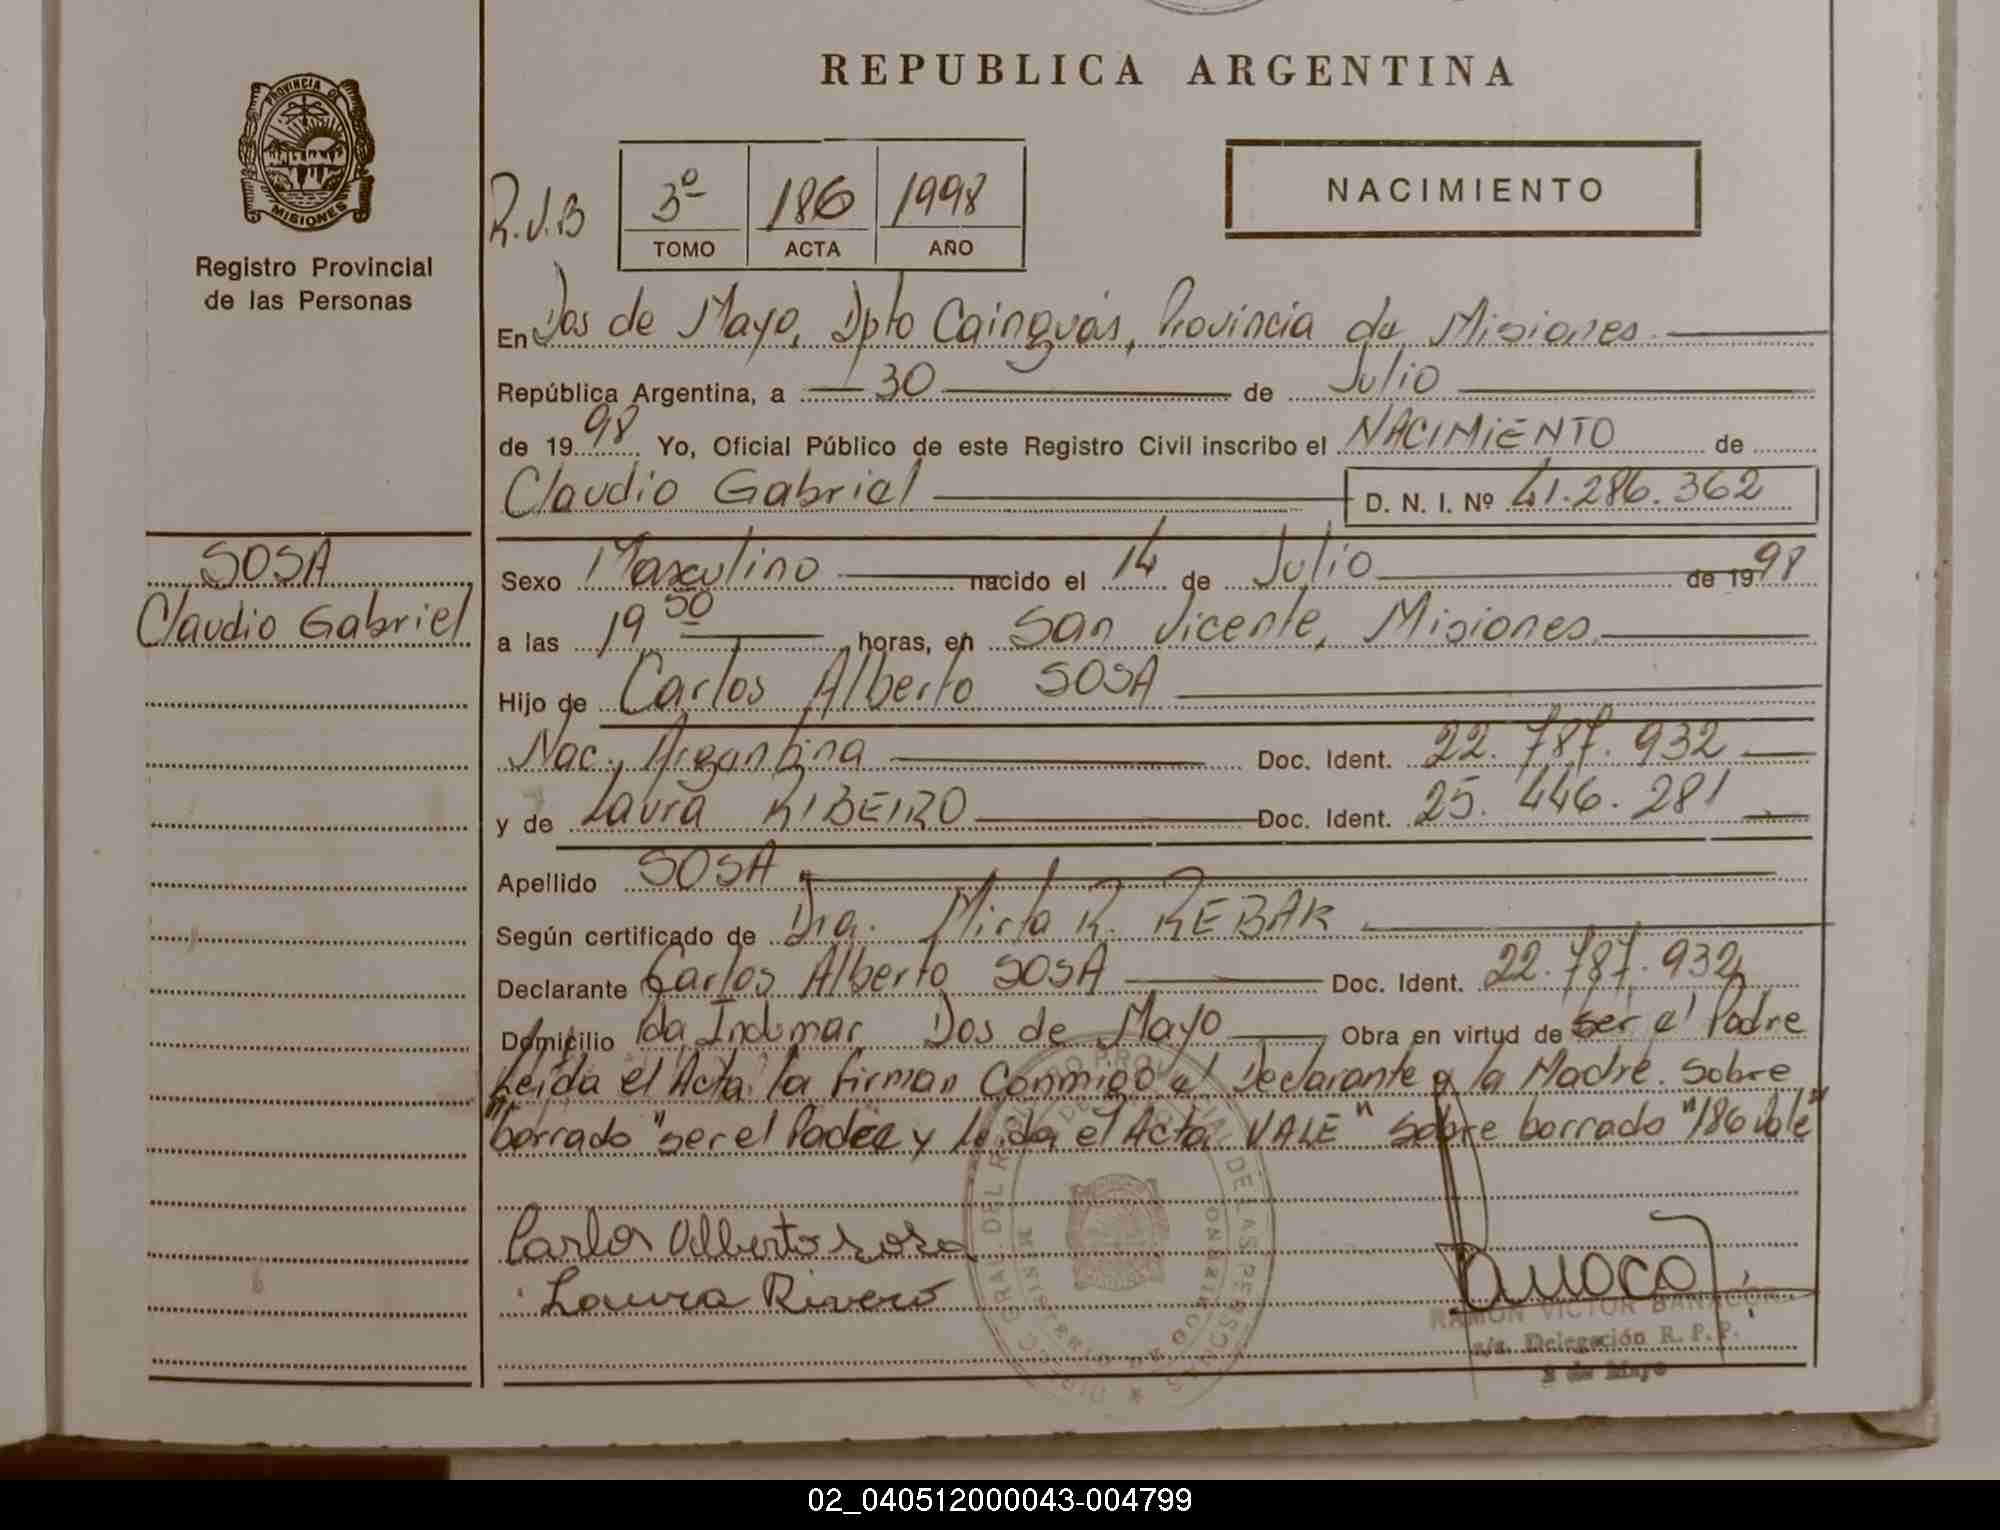 REPUBLICA ARGENTINA
PROVINCIA D
MISIONES
Registro Provincial
de las Personas
R.V.B
3º 186 1998
TOMO ACTA AÑO
NACIMIENTO
En Dos de Mayo, Dpto Cainguás, Provincia de Misiones
República Argentina, a 30 de Julio
de 1998 Yo, Oficial Público de este Registro Civil inscribo el NACIMIENTO de
Claudio Gabriel D. N. I. Nº 41.286.362
SOSA
Claudio Gabriel
Sexo Masculino nacido el 14 de Julio de 1998
a las 19 50 horas, en San Vicente, Misiones
Hijo de Carlos Alberto SOSA
Nac. Argentina Doc. Ident. 22.787.932
y de Laura RIBEIRO Doc. Ident. 25.446.281
Apellido SOSA
Según certificado de Dra. Mirta R. REBAK
Declarante Carlos Alberto SOSA Doc. Ident. 22.787.932
Domicilio Ida Indumar Dos de Mayo Obra en virtud de ser el Padre
Leída el Acta la firman Conmigo el Declarante y la Madre. Sobre
"borrado "ser el Padre y leída el Acta VALE" Sobre borrado "186 Vale"
Carlos Alberto Sosa
Laura Rivero
RAMON VICTOR BANACOR
a/c. Delegación R. P. P.
2 de Mayo
02_040512000043-004799